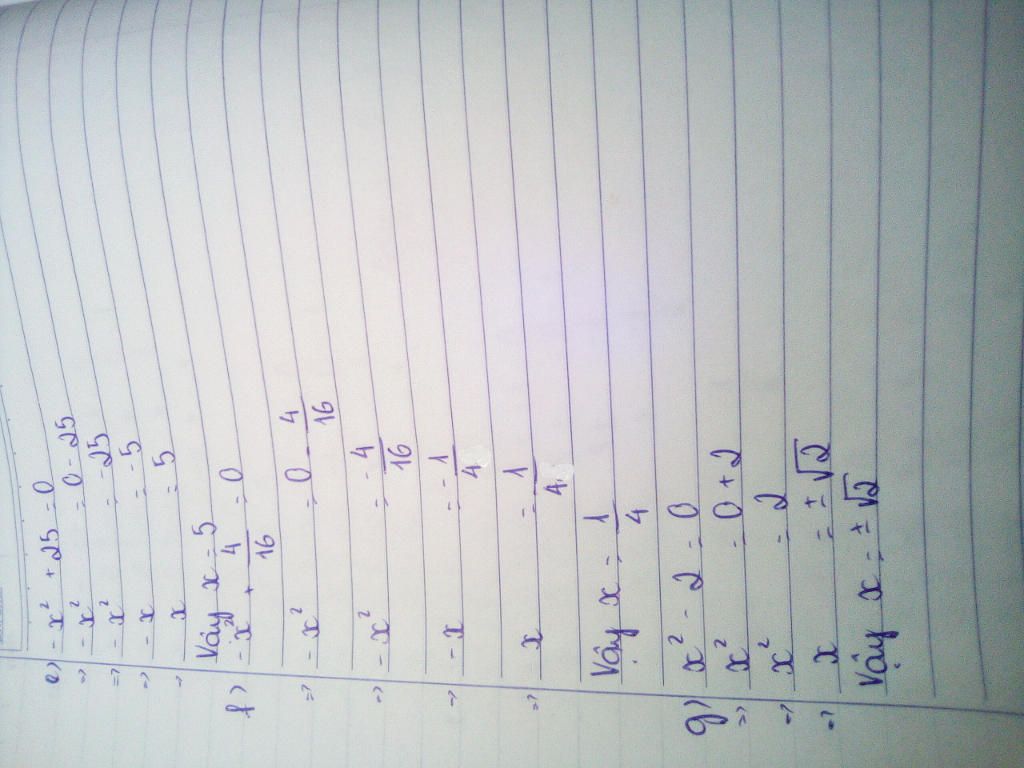 e) -x² + 25 = 0
=> -x² = 0 - 25
=> -x² = -25
=> -x = -5
→ x = 5
Vậy x = 5
f) -x² + 4/16 = 0
=> -x² = 0 - 4/16
=> -x² = -4/16
=> -x = -1/4
=> x = 1/4
Vậy x = 1/4
g) x² - 2 = 0
=> x² = 0 + 2
=> x² = 2
=> x = ±√2
Vậy x = ±√2